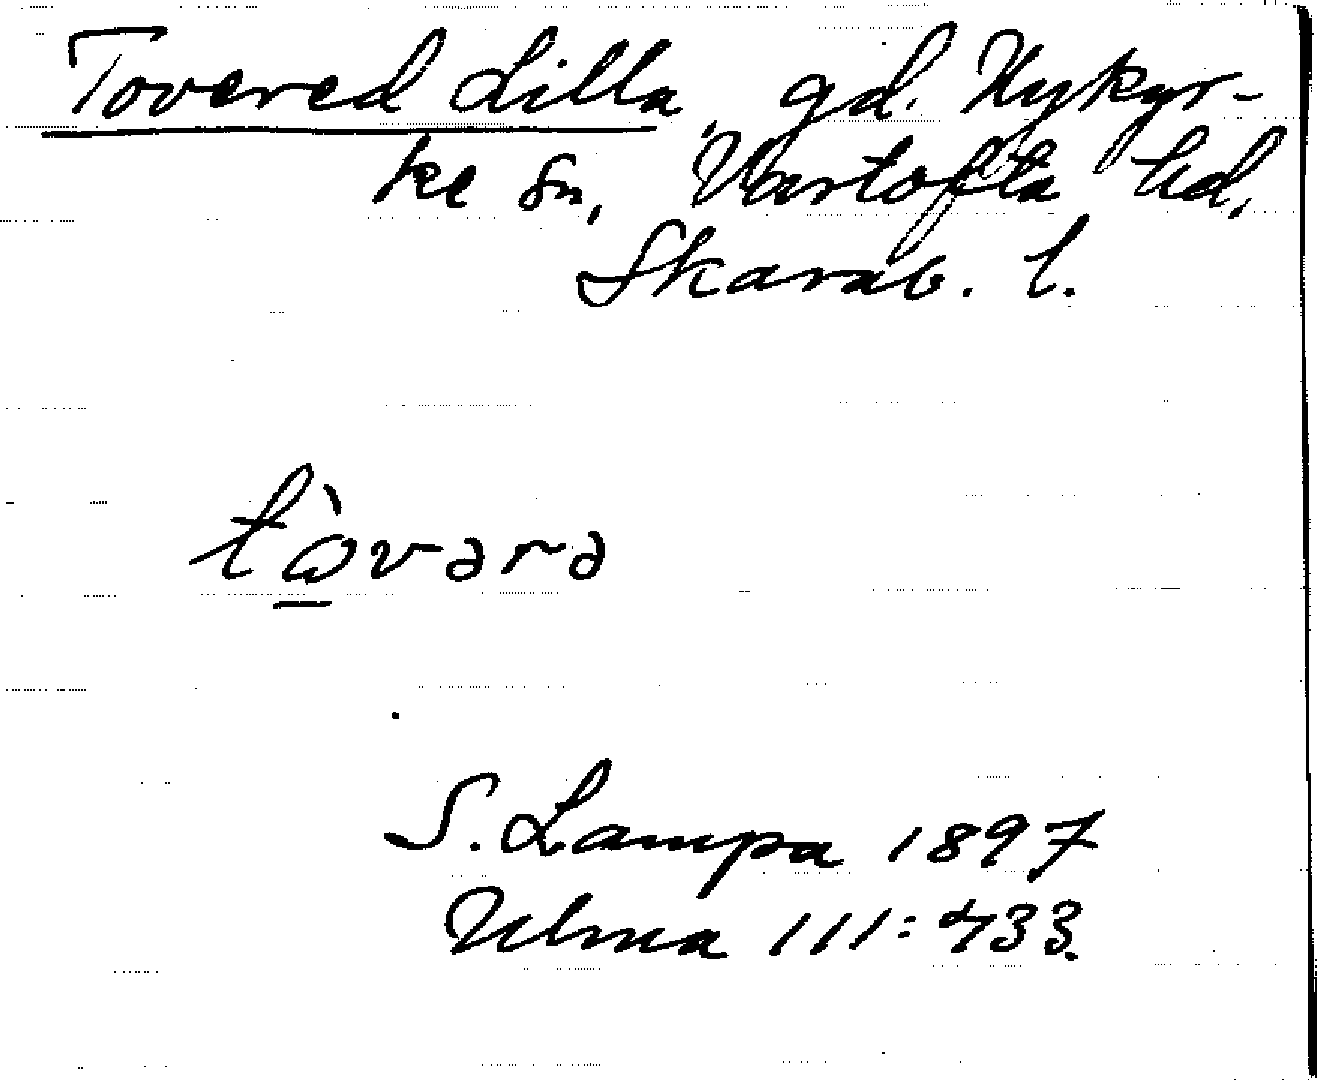 Tovered Lilla, gd. Nykyr-
ke sn, Vartofta hd,
Skarab. l.
tò̱vərə
S. Lampa 1897
Ulma 111:433.